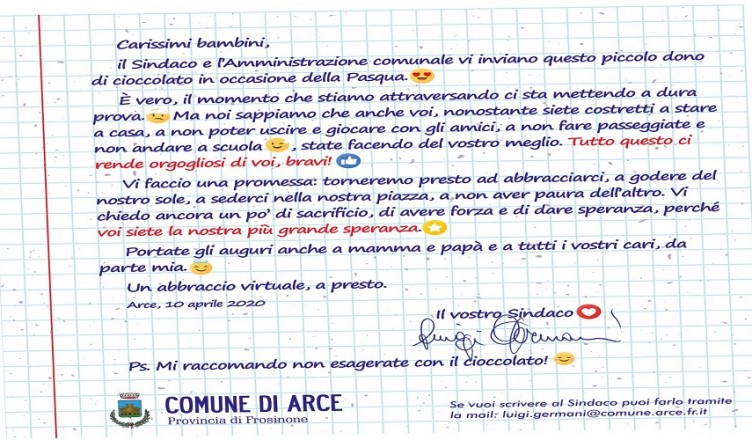 Carissimi bambini,
il Sindaco e l'Amministrazione comunale vi inviano questo piccolo dono
di cioccolato in occasione della Pasqua. 😍
È vero, il momento che stiamo attraversando ci sta mettendo a dura
prova. 😕 Ma noi sappiamo che anche voi, nonostante siete costretti a stare
a casa, a non poter uscire e giocare con gli amici, a non fare passeggiate e
non andare a scuola 😉, state facendo del vostro meglio. Tutto questo ci
rende orgogliosi di voi, bravi! 👍
Vi faccio una promessa: torneremo presto ad abbracciarci, a godere del
nostro sole, a sederci nella nostra piazza, a non aver paura dell'altro. Vi
chiedo ancora un po' di sacrificio, di avere forza e di dare speranza, perché
voi siete la nostra più grande speranza. ⭐
Portate gli auguri anche a mamma e papà e a tutti i vostri cari, da
parte mia. 😇
Un abbraccio virtuale, a presto.
Arce, 10 aprile 2020
Il vostro Sindaco ❤
Luigi Germani
Ps. Mi raccomando non esagerate con il cioccolato! 😉
COMUNE DI ARCE
Provincia di Frosinone
Se vuoi scrivere al Sindaco puoi farlo tramite
la mail: luigi.germani@comune.arce.fr.it